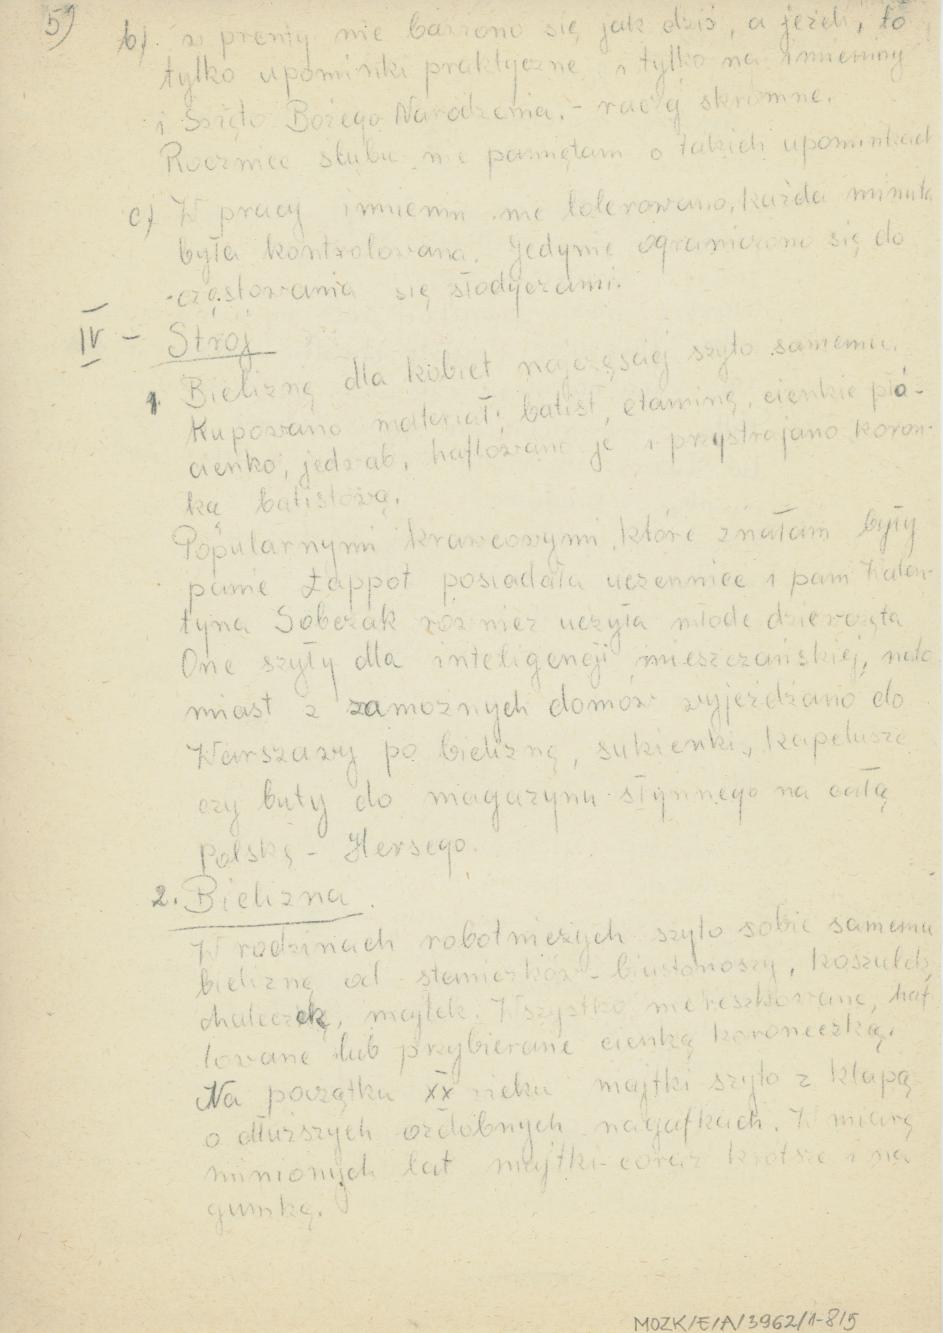 5)
b) w prenty nie bawiono się jak dziś, a jeżeli, to
tylko upominki praktyczne i tylko na imieniny
i Święto Bożego Narodzenia, - raczej skromne.
Rocznice ślubu nie pamiętam o takich upominkach
c) W pracy imienin nie tolerowano, każda minuta
była kontrolowana. Jedynie ograniczono się do
częstowania się słodyczami.
IV - Strój
1. Bieliznę dla kobiet najczęściej szyto samemu.
Kupowano materiał; batist, etaminę, cienkie płó-
cienko, jedwab, haftowano je i przystrajano koron-
ką batistową.
Popularnymi krawcowymi, które znałam były
panie Łappot posiadała uczennice i pani Walen-
tyna Sobczak również uczyła młode dziewczęta
One szyły dla inteligencji mieszczańskiej, nato
miast z zamożnych domów wyjeżdżano do
Warszawy po bieliznę, sukienki, kapelusze
czy buty do magazynu słynnego na całą
Polskę - Hersego.
2. Bielizna.
W rodzinach robotniczych szyto sobie samemu
bieliznę od staniczków - biustonoszy, koszulek,
chaleczek, majtek. Wszystko mereszkowane, haf
towane lub przybierane cienką koroneczką.
Na początku XX wieku majtki szyto z klapą
o dłuższych ozdobnych nogawkach. W miarę
minionych lat majtki coraz krótsze i na
gumkę.
MOZK/E/A/3962/1-8/5